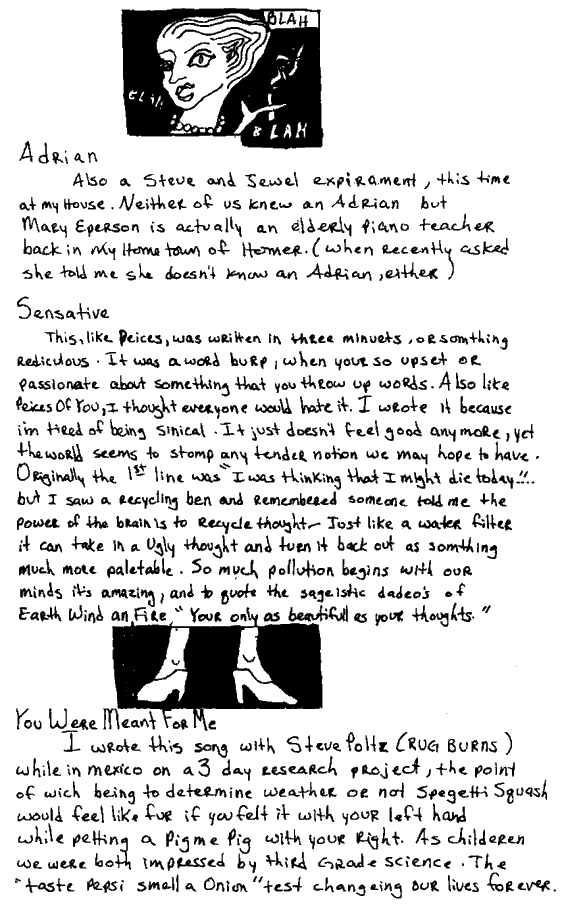 BLAH
BLAH
BLAH
Adrian
Also a Steve and Jewel expirament, this time
at my House. Neither of us knew an Adrian but
Mary Eperson is actually an elderly piano teacher
back in my Home town of Homer. (when recently asked
she told me she doesn't know an Adrian, either)
Sensative
This, like Peices, was written in three minuets, or somthing
rediculous. It was a word burp, when your so upset or
passionate about something that you throw up words. Also like
Peices Of You, I thought everyone would hate it. I wrote it because
im tired of being sinical. It just doesn't feel good any more, yet
the world seems to stomp any tender notion we may hope to have.
Originally the 1st line was "I was thinking that I might die today"...
but I saw a recycling ben and remembered someone told me the
power of the brain is to recycle thought – Just like a water filter
it can take in a ugly thought and turn it back out as somthing
much more paletable. So much pollution begins with our
minds it's amazing, and to quote the sageistic dadeo's of
Earth Wind an Fire "Your only as beautifull as your thoughts."
You Were Meant For Me
I wrote this song with Steve Poltz (RUG BURNS)
while in mexico on a 3 day research project, the point
of wich being to determine weather or not Spegetti Squash
would feel like fur if you felt it with your left hand
while petting a Pigme Pig with your Right. As childeren
we were both impressed by third Grade science. The
"taste Pepsi smell a Onion" test changeing our lives forever.